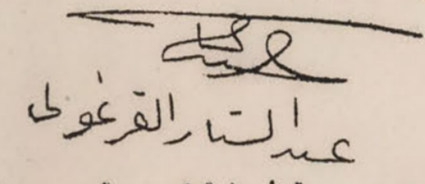 عبد الستار القرغولي